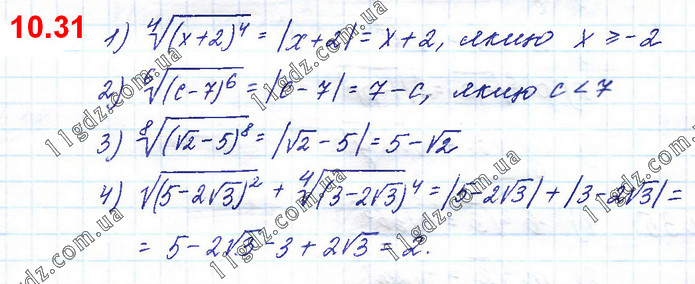 10.31
1) ⁴√(x+2)⁴ = |x+2| = x+2, якщо x ≥ -2
2) ⁶√(c-7)⁶ = |c-7| = 7-c, якщо c < 7
3) ⁸√(√2-5)⁸ = |√2-5| = 5-√2
4) √(5-2√3)² + ⁴√(3-2√3)⁴ = |5-2√3| + |3-2√3| =
= 5-2√3-3+2√3 = 2.
11gdz.com.ua
11gdz.com.ua
11gdz.com.ua
11gdz.com.ua
11gdz.com.ua
11gdz.com.ua